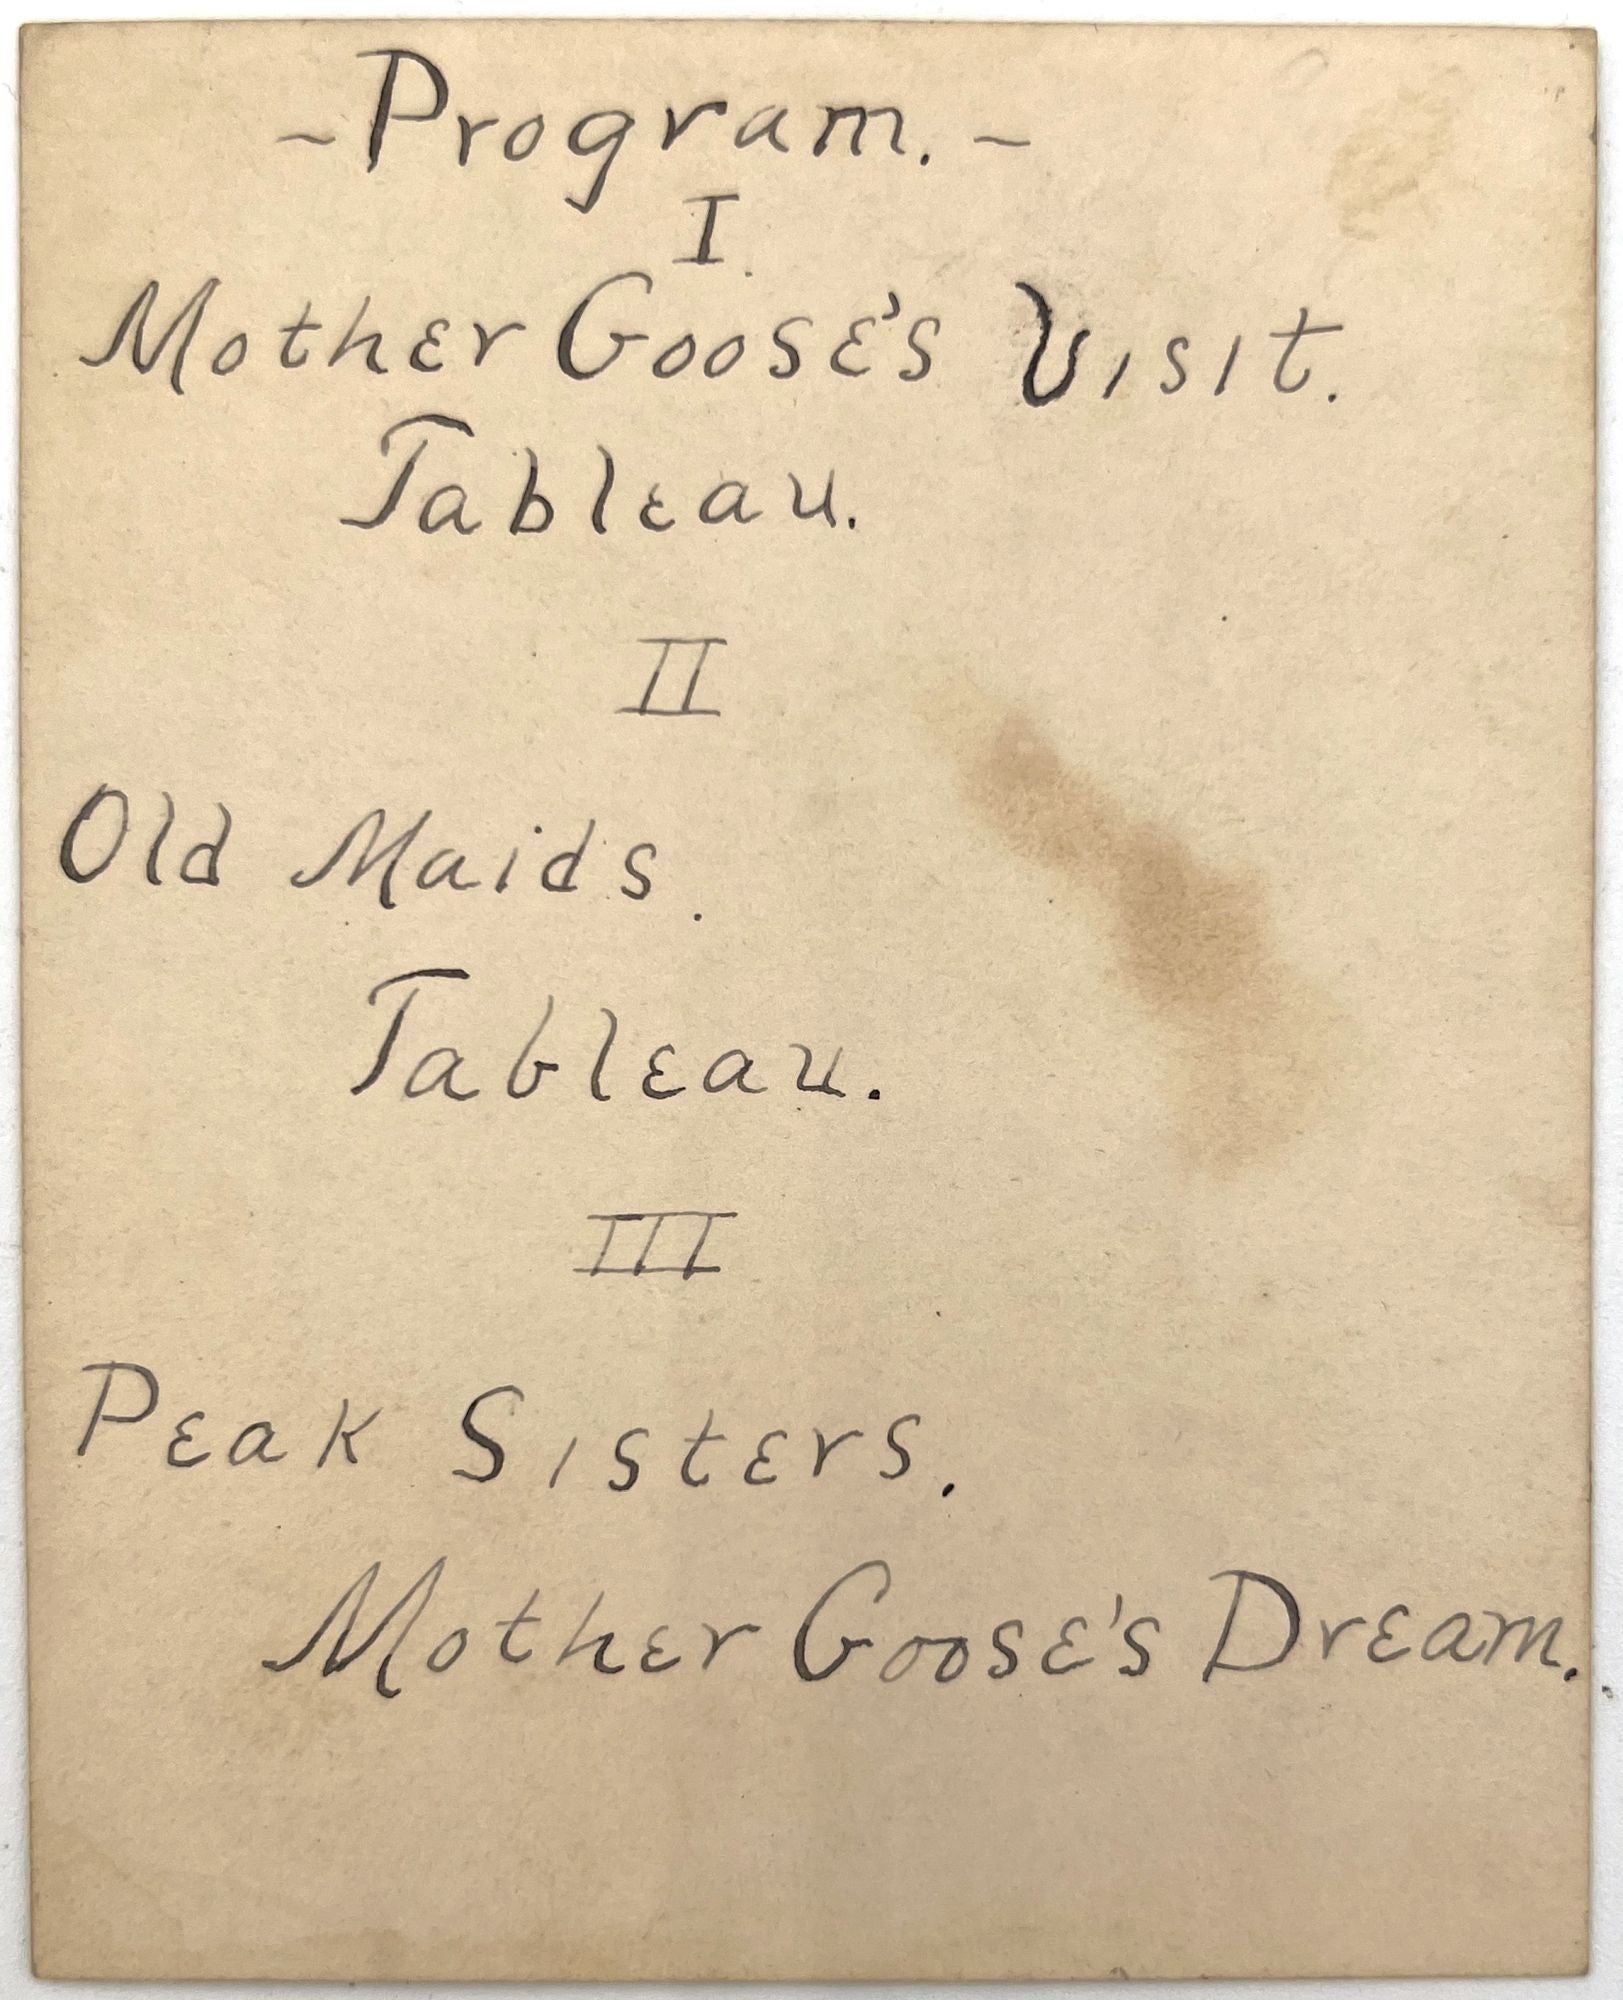 ~ Program. ~
I.
Mother Goose's Visit.
Tableau.
II
Old Maids.
Tableau.
III
Peak Sisters.
Mother Goose's Dream.